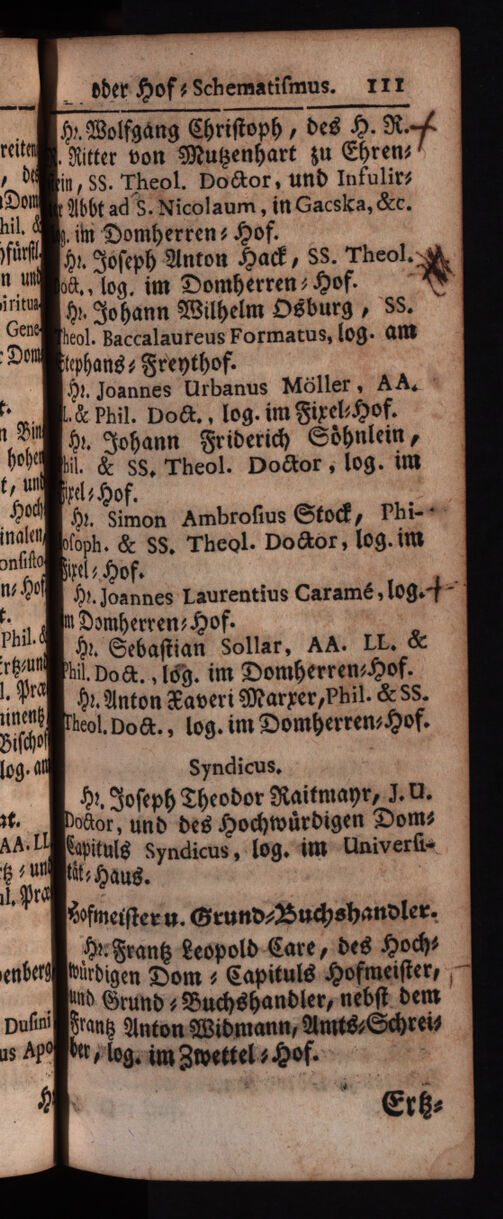 oder Hof-Schematismus. 111
Hr. Wolfgang Christoph, des H. R.
R. Ritter von Mutzenhart zu Ehren-
tein, SS. Theol. Doctor, und Infulir-
Abbt ad S. Nicolaum, in Gacska, &c.
im Domherren-Hof.
Hr. Joseph Anton Hack, SS. Theol.
Doct., log. im Domherren-Hof.
Hr. Johann Wilhelm Osburg, SS.
Theol. Baccalaureus Formatus, log. am
Stephans-Freythof.
Hr. Joannes Urbanus Möller, AA.
L. & Phil. Doct., log. im Fixel-Hof.
Hr. Johann Friderich Söhnlein,
Phil. & SS. Theol. Doctor, log. im
Fixel-Hof.
Hr. Simon Ambrosius Stock, Phi-
losoph. & SS. Theol. Doctor, log. im
Fixel-Hof.
Hr. Joannes Laurentius Caramé, log.
im Domherren-Hof.
Hr. Sebastian Sollar, AA. LL. &
Phil. Doct., log. im Domherren-Hof.
Hr. Anton Xaveri Marxer, Phil. & SS.
Theol. Doct., log. im Domherren-Hof.
Syndicus.
Hr. Joseph Theodor Raitmayr, J. U.
Doctor, und des Hochwürdigen Dom-
Capituls Syndicus, log. im Universi-
tät-Haus.
Hofmeister u. Grund-Buchshandler.
Hr. Frantz Leopold Care, des Hoch-
würdigen Dom-Capituls Hofmeister,
und Grund-Buchshandler, nebst dem
Frantz Anton Widmann, Amts-Schrei-
ber, log. im Zwettel-Hof.
Ertz-